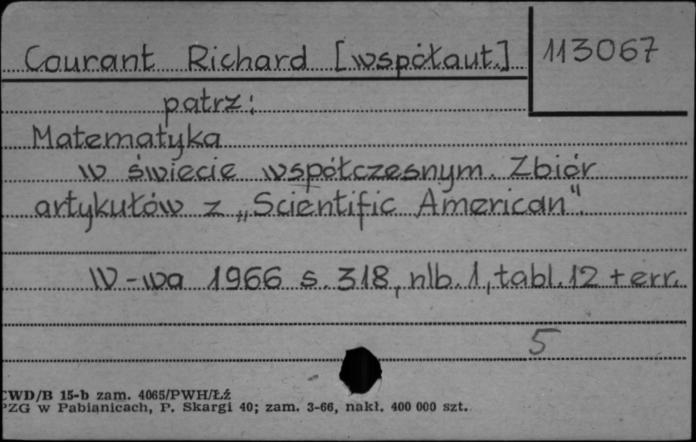 Courant Richard [współaut.]
113067
patrz:
Matematyka
w świecie współczesnym. Zbiór
artykułów z „Scientific American".
W-wa 1966 s. 318, nlb. 1, tabl. 12 + err.
5
CWD/B 15-b zam. 4065/PWH/Łź
PZG w Pabianicach, P. Skargi 40; zam. 3-66, nakł. 400 000 szt.